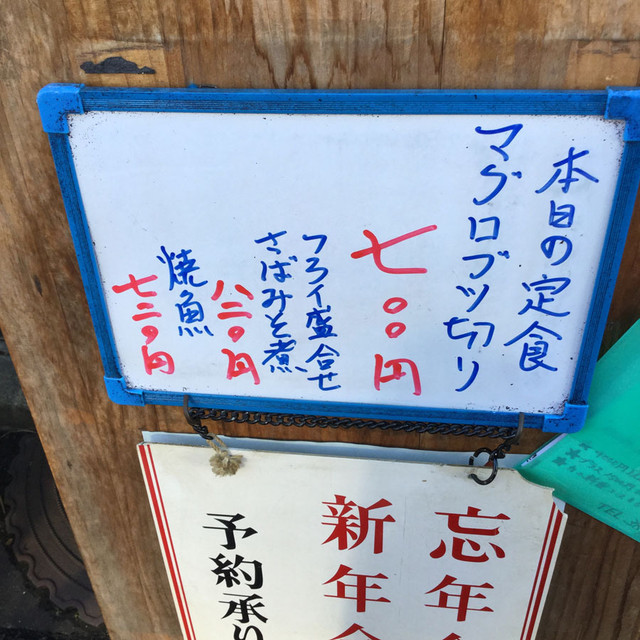 本日の定食
マグロブツ切り
七〇〇円
フライ盛合せ
さばみそ煮
八二〇円
焼魚
七二〇円
忘年
新年会
予約承り
TEL